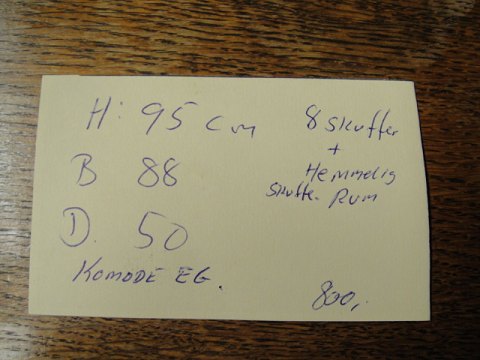 H: 95 cm
B 88
D. 50
KOMODE EG.
8 skuffer
+
Hemmelig
skuffe. Rum
800,.